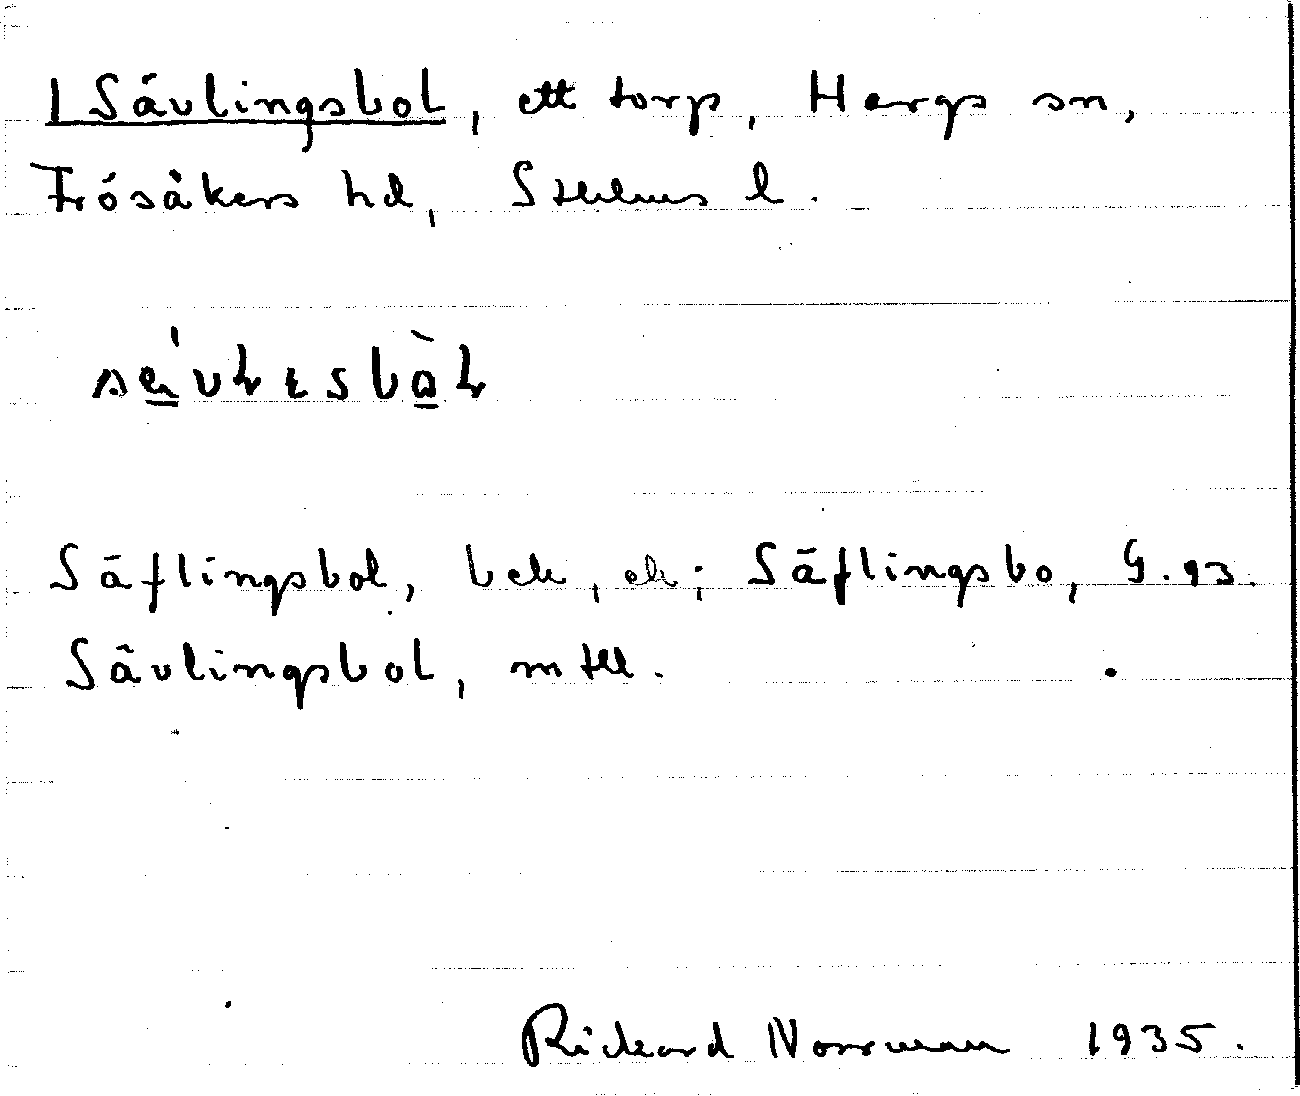 Sävlingsbol, ett torp, Hargs sn,
Frösåkers hd, Sthlms l.
Säflingsbol, bek, ek; Säflingsbo, G. 93.
Sävlingsbol, mtll.
Rickard Norrman 1935.